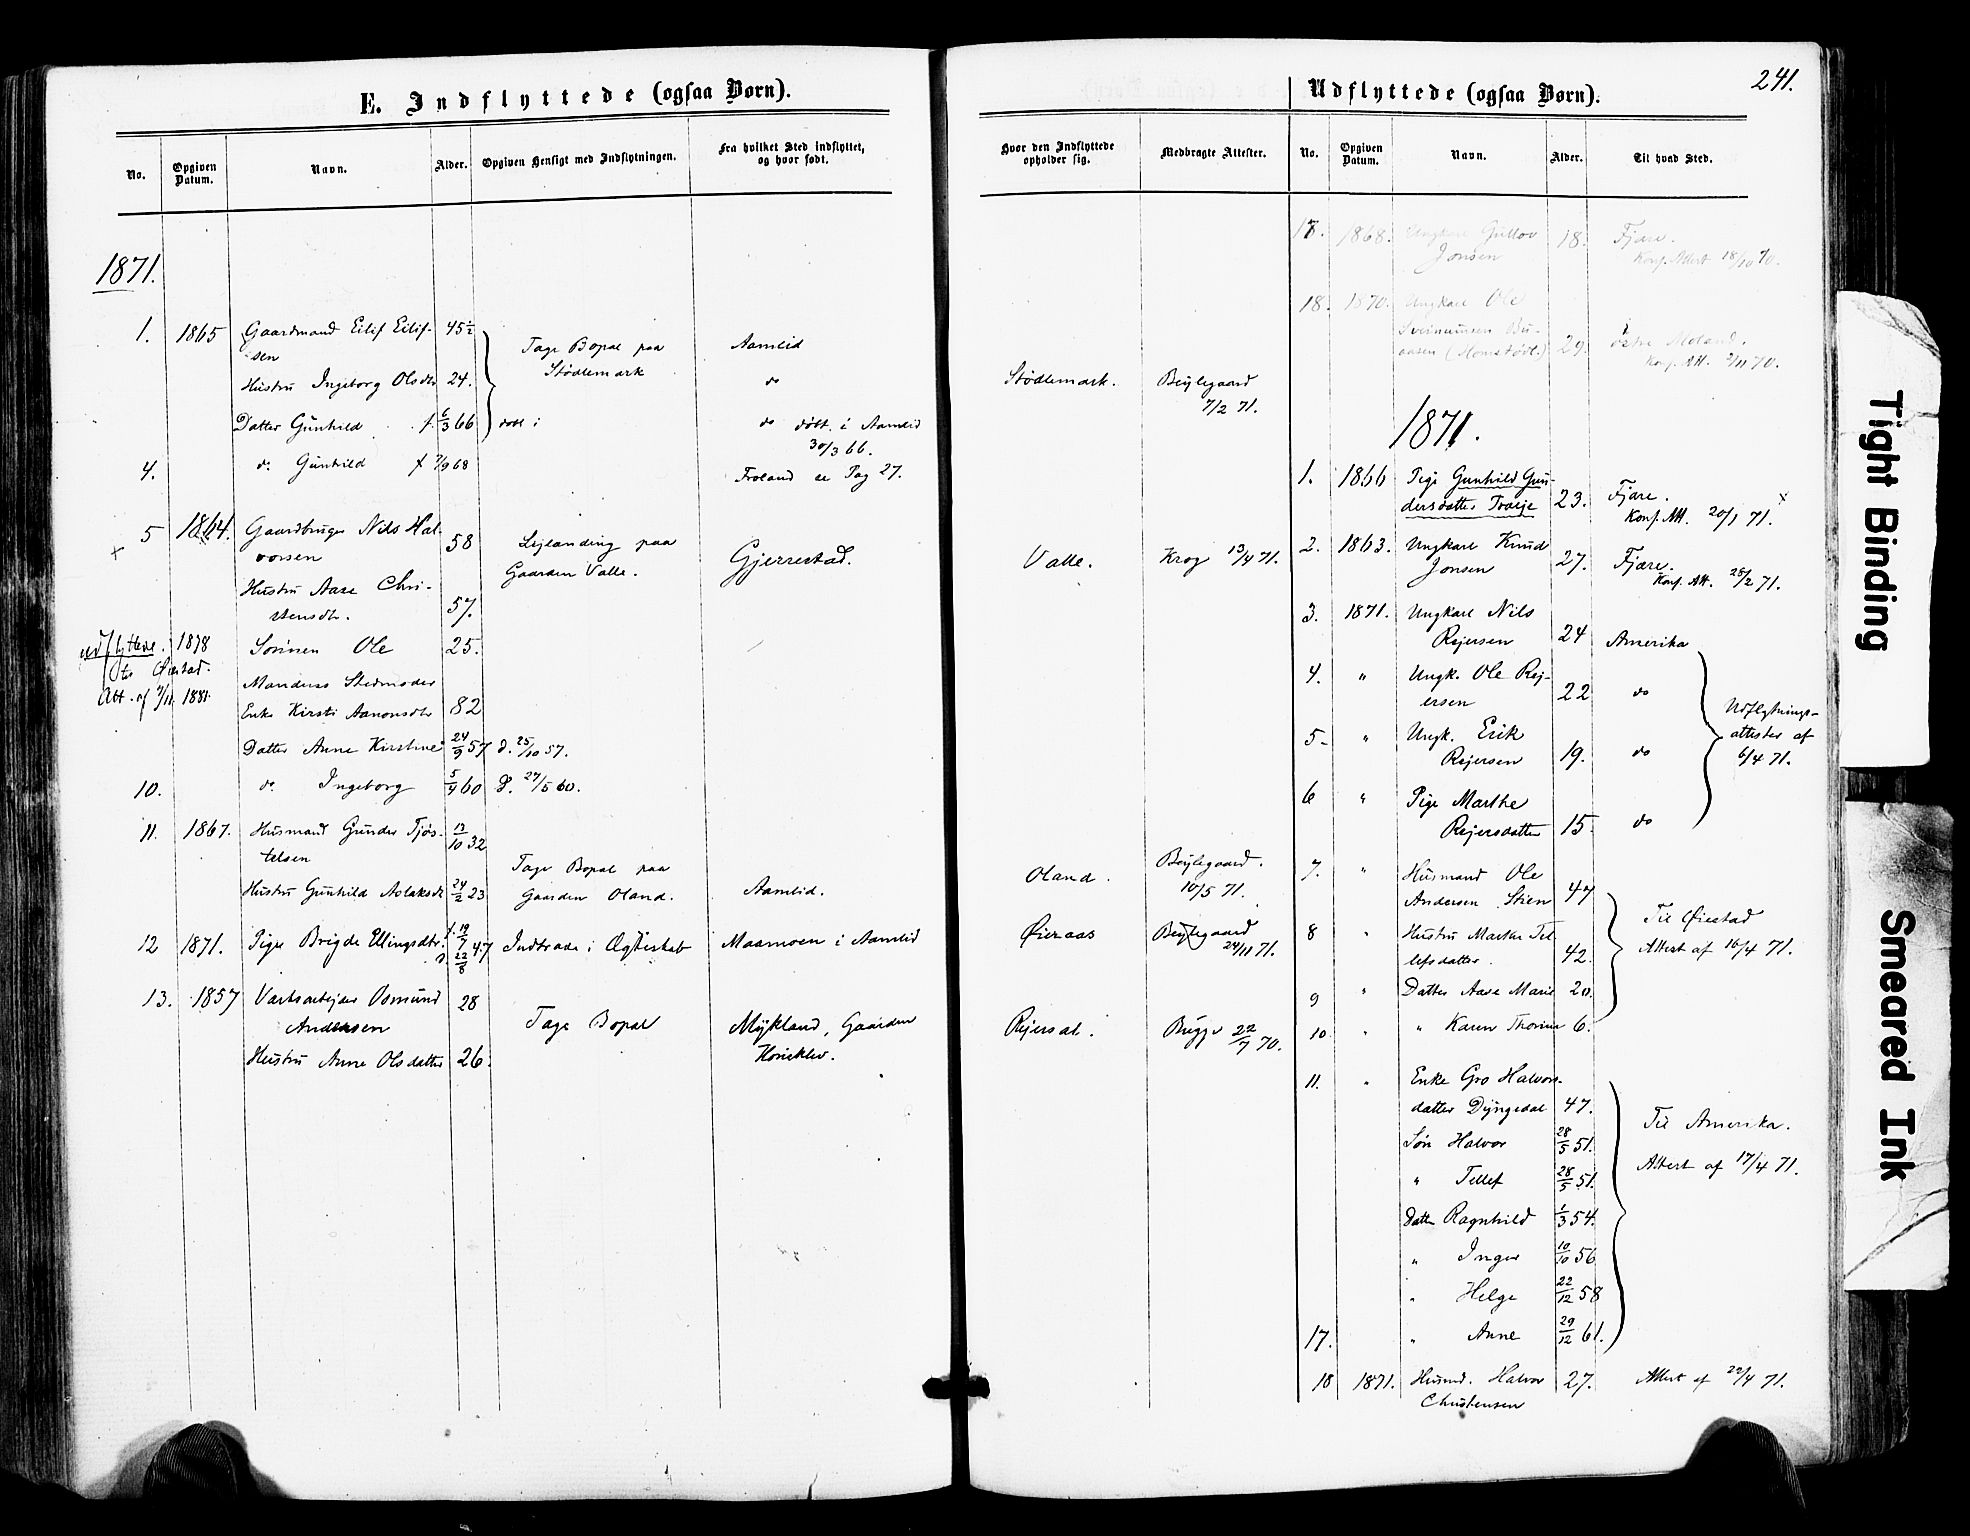 E. Indflyttede (ogsaa Børn).
No.
Opgiven Datum.
Navn.
Alder.
Opgiven Hensigt med Indflytningen.
Fra hvilket Sted indflyttet,
og hvor født.
1871.
1. 1865 Gaardmand Eilif Eilif- 45½
sen
Tage Bopæl paa
Stødlemark
Aamlid
Hustru Ingeborg Olsdtr 24. do
Datter Gunhild f. 6/3 66 født i do døbt i Aamlid
30/3 66.
4. do Gunhild f 7/9 68 Froland se Pag 27.
5 1864. Gaardbruger Nils Hal-
vorsen 58
Lejlænding paa
Gaarden Valle.
Gjerrestad.
Hustru Aase Chri-
stensdtr. 57.
udflyttede. 1878 Sønnen Ole 25.
til Øiestad.
Att. af 7/11 1881.
Mandens Stedmoder
Enke Kirsti Aanonsdtr 82
Datter Anne Kirstine 24/9 57 d. 25/10 57.
10. do Ingeborg 5/4 60 d. 27/5 60.
11. 1867. Husmand Gunder Tjøs-
telsen 13/10 32
Tage Bopæl paa
Gaarden Oland.
Hustru Gunhild Aslaksdtr 24/2 23 Aamlid.
12 1871. Pige Brigde Ellingsdtr. f. 19/7 47 Indtræde i Ægteskab Maamoen i Aamlid
22/8
13. 1857 Værksarbejder Osmund 28
Andersen
Tage Bopæl
Mykland, Gaarden
Hustru Anne Olsdatter 26.
241.
Udflyttede (ogsaa Børn).
Hvor den Indflyttede
opholder sig.
Medbragte Attester.
No.
Opgiven Datum.
Navn.
Alder.
Til hvad Sted.
Stødlemark. Beylegaard
7/2 71.
Valle. Krog 13/4 71.
Oland. Beylegaard.
10/5 71.
Øieraas Beylegaard
24/11 71.
Rejersøl. Bugge 22/7 70.
17. 1868. Ungkarl Gullov 18. Fjære.
Jonsen Konf. Attest 18/10 70.
18. 1870. Ungkarl Ole
29. Østre Moland.
Konf. Att. 2/11 70.
1871.
1. 1866 Pige Gunhild Gun-
dersdatter Traeje 23. Fjære.
Konf. Att. 20/1 71.
2. 1863. Ungkarl Knud
Jonsen 27. Fjære.
Konf. Att. 28/2 71.
3. 1871. Ungkarl Nils
Rejersen 24 Amerika
4. " Ungk. Ole Rej-
ersen 22 do
5. " Ungk. Erik
Rejersen 19. do
6 " Pige Marthe
Rejersdatter 15. do
Udflytnings-
attester af
6/4 71.
7. " Husmand Ole
Andersen Stien 47
8 " Hustru Marthe Tel-
lefsdatter. 42.
9 " Datter Aase Marie 20.
10 " " Karen Thorine 6.
Til Øiestad
Attest af 16/4 71.
11. " Enke Gro Halvors-
datter Dyngedal 47.
Søn Halvor 28/5 51.
" Tellef 28/5 51.
Datter Ragnhild 1/3 54.
" Inger 10/10 56
" Helge 22/12 58
17. " Anne 29/12 61.
Til Amerika.
Attest af 17/4 71.
18 1871. Husmd. Halvor 27. Attest af 22/4 71.
Christensen
Tight Binding
Smeared Ink